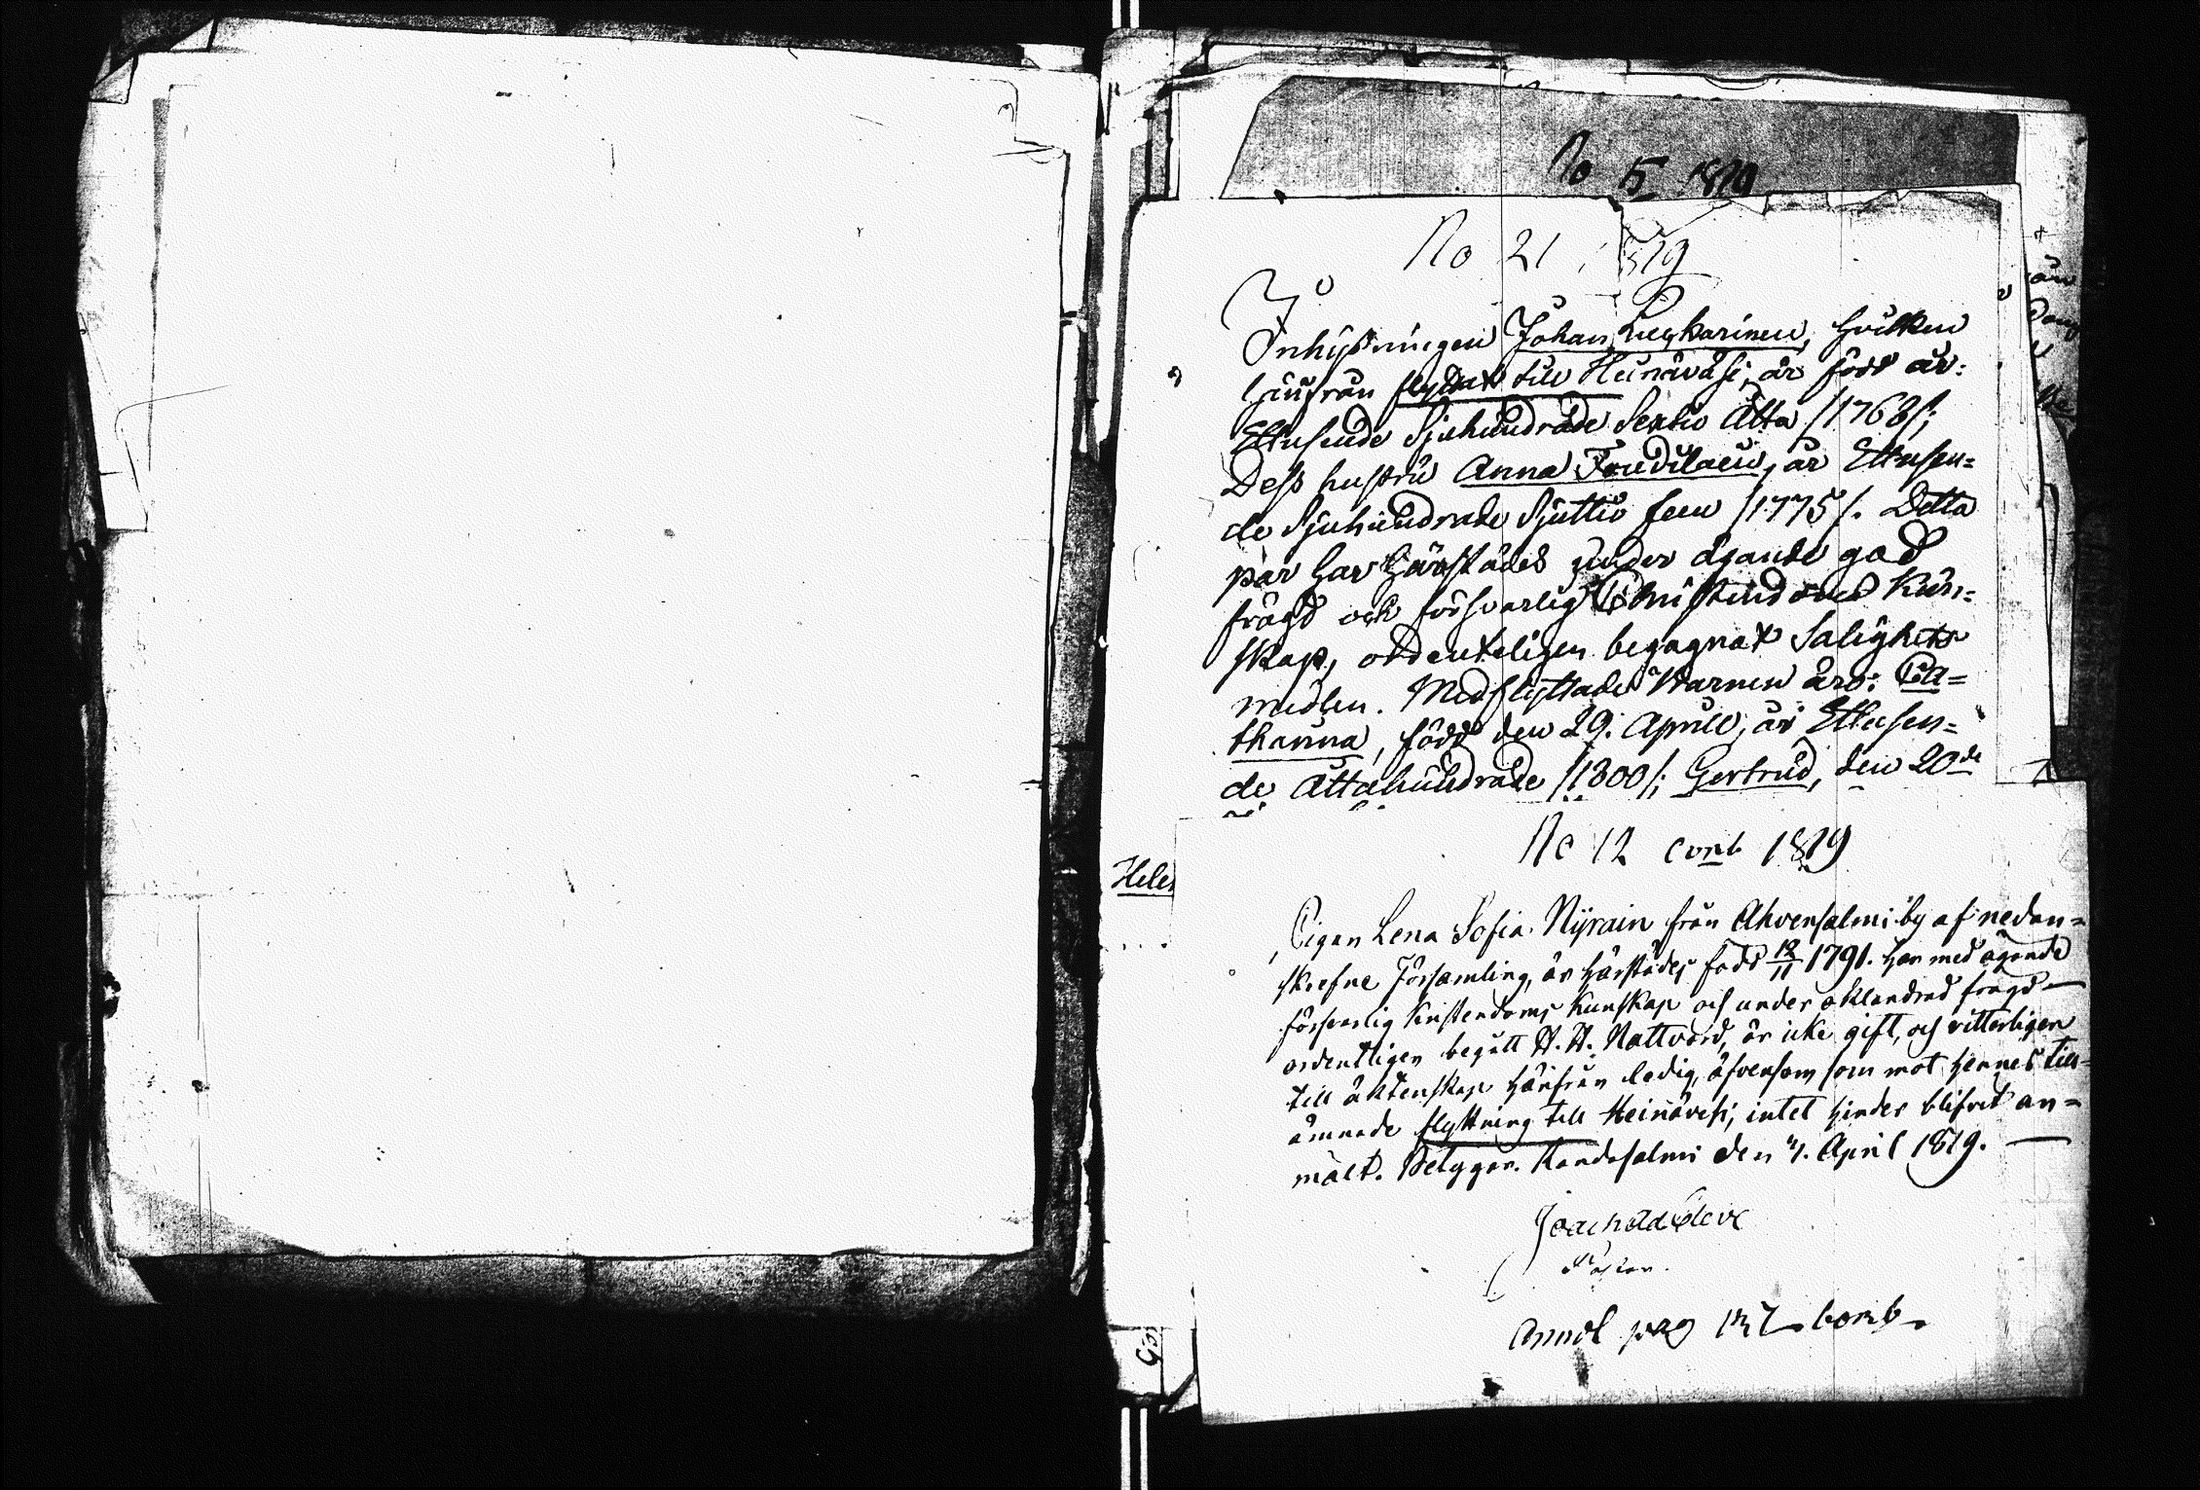 No 5 1819
No 21 1819
Inhysningen Johan Luukarinen, hvilken
härifrån flyttat till Heinävesi, är född år:
Ettusende Sjuhundrade Sextio Åtta /1768/;
Dess hustru Anna Taudilain, år Ettusen=
de Sjuhundrade Sjuttio fem /1775/. Detta
par har härstädes under ägande god
frägd och försvarlig Christendoms Kun=
skap, ordenteligen begagnat Salighets
medlen. Medflyttade Barnen äro: Ca=
tharina, född den 29. Aprill, år Ettusen=
de Åttahundrade /1800/; Gertrud, den 20de
Helen
No 12 comb 1819
Pigan Lena Sofia Nyrain från Ahvensalmi by af nedan=
skrefne Församling, är härstädes född 12/11 1791. Har med ägande
försvarlig Kristendoms Kunskap och under oklandrad frägd
ordentligen begått H. H. Nattvard, är icke gift, och vitterligen
till äktenskap härifrån ledig, äfvensom som mot hennes till=
ämnade flyttning till Heinävesi; intet hinder blifvit an=
mält. Betygar. Randasalmi den 4. April 1819.
Joach Ad Cleve
Pastor.
Annot pag 137 comb.